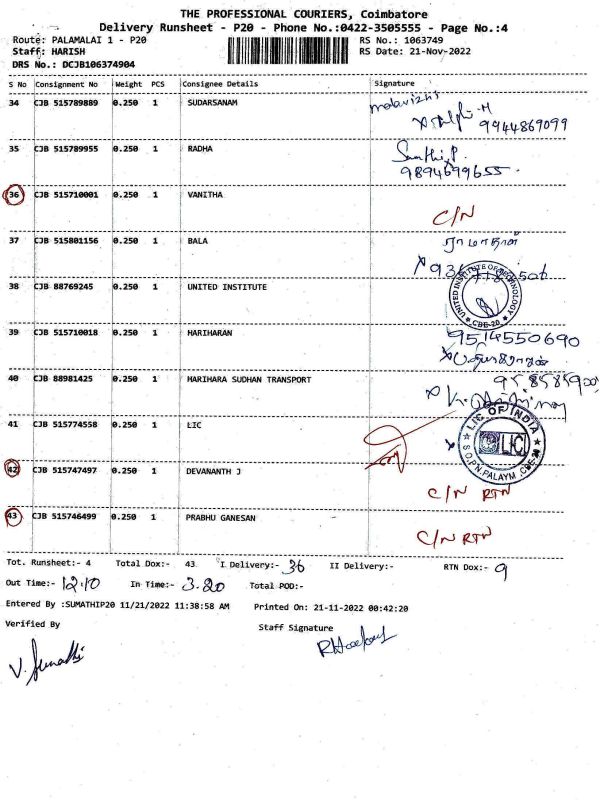 THE PROFESSIONAL COURIERS, Coimbatore
Delivery Runsheet - P20 - Phone No.:0422-3505555 - Page No.:4
Route: PALAMALAI 1 - P20 RS No.: 1063749
Staff: HARISH RS Date: 21-Nov-2022
DRS No.: DCJB106374904
S No Consignment No Weight PCS Consignee Details Signature
34 CJB 515789889 0.250 1 SUDARSANAM
9944869099
35 CJB 515789955 0.250 1 RADHA Sumathi P.
9894699655
36 CJB 515710001 0.250 1 VANITHA
C/N
37 CJB 515801156 0.250 1 BALA
38 CJB 88769245 0.250 1 UNITED INSTITUTE UNITED INSTITUTE OF TECHNOLOGY CBE-20
39 CJB 515710018 0.250 1 HARIHARAN 9514550690
40 CJB 88981425 0.250 1 HARIHARA SUDHAN TRANSPORT
41 CJB 515774558 0.250 1 LIC LIC OF INDIA LIC S.O.P.N.PALAYM,CBE-20
42 CJB 515747497 0.250 1 DEVANANTH J
C/N RTN
43 CJB 515746499 0.250 1 PRABHU GANESAN
C/N RTN
Tot. Runsheet:- 4 Total Dox:- 43 I Delivery:- 36 II Delivery:- RTN Dox:- 9
Out Time:- 12.10 In Time:- 3.20 Total POD:-
Entered By :SUMATHIP20 11/21/2022 11:38:58 AM Printed On: 21-11-2022 00:42:20
Verified By Staff Signature
V. Sumathi